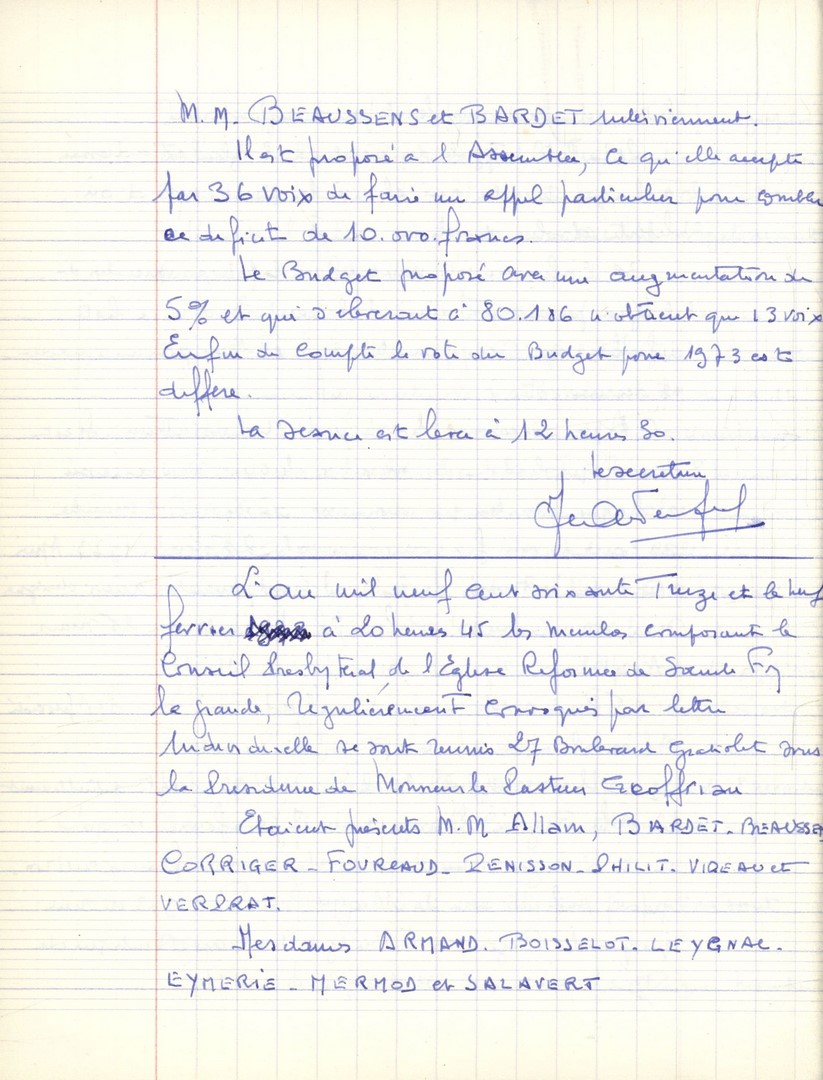 M.M. BEAUSSENS et BARDET interviennent.
Il est proposé a l Assemblée, ce qu'elle accepte
par 36 voix de faire un appel particulier pour combler
ce deficit de 10.000. francs.
Le Budget proposé avec une augmentation de
5% et qui s'eleverait à 80.186 n'obtient que 13 voix
En fin de compte le vote du Budget pour 1973 est
differe.
La seance est levee à 12 heures 30.
le secretaire
L'an mil neuf cent soixante Treize et le neuf
fevrier à 20 heures 45 les membres composant le
Conseil Presbyteral de l'Eglise Reformee de Sainte Foy
la grande, regulièrement convoqués par lettre
individuelle se sont reunis 27 Boulevard Gratiolet sous
la Presidence de Monsieur le Pasteur Geoffriau
Etaient présents M.M Allam, BARDET. BEAUSSE
CORRIGER - FOURCAUD - RENISSON - PHILIT. VIREAU et
VERPRAT.
Mesdames ARMAND. BOISSELOT. LEYGNAC.
EYMERIE - MERMOD et SALAVERT